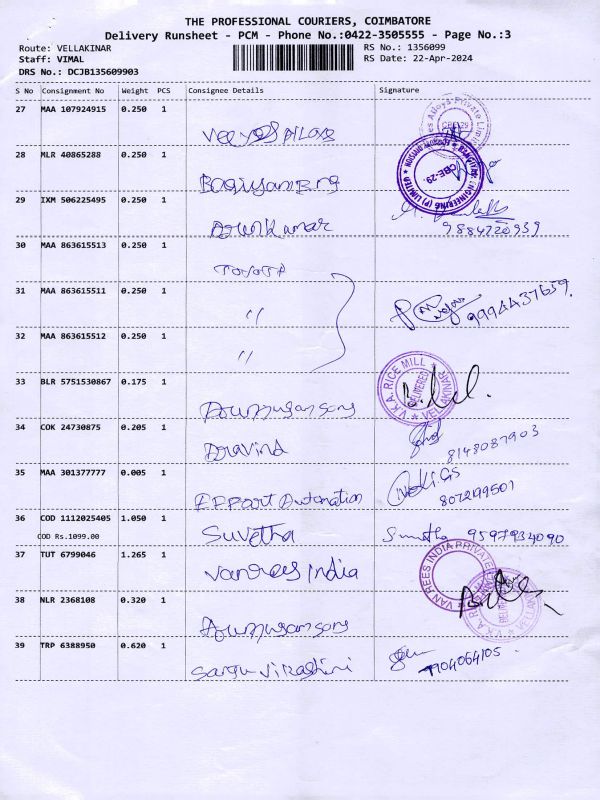 THE PROFESSIONAL COURIERS, COIMBATORE
Delivery Runsheet - PCM - Phone No.:0422-3505555 - Page No.:3
Route: VELLAKINAR
RS No.: 1356099
Staff: VIMAL
RS Date: 22-Apr-2024
DRS No.: DCJB135609903
S No Consignment No Weight PCS Consignee Details Signature
27 MAA 107924915 0.250 1
28 MLR 40865288 0.250 1
CBE-29.
29 IXM 506225495 0.250 1
Arunkumar
9884720939
30 MAA 863615513 0.250 1
TOYOTA
31 MAA 863615511 0.250 1
" 9994437659
32 MAA 863615512 0.250 1
"
33 BLR 5751530867 0.175 1
V.K.A. RICE MILL DELIVERED VELLAKINAR
34 COK 24730875 0.205 1
Aravind 8148087903
35 MAA 301377777 0.005 1
Effort Automation
36 COD 1112025405 1.050 1
COD Rs.1099.00
Suvetha 9597934090
37 TUT 6799046 1.265 1
VanRees India
VAN REES INDIA PRIVATE
38 NLR 2368108 0.320 1
39 TRP 6388950 0.620 1
9904064105